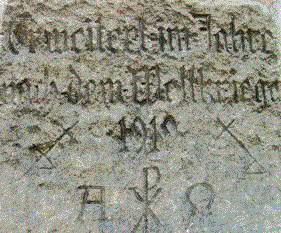 Erweitert im Jahre
nach dem Weltkriege
1919
Α ☧ Ω